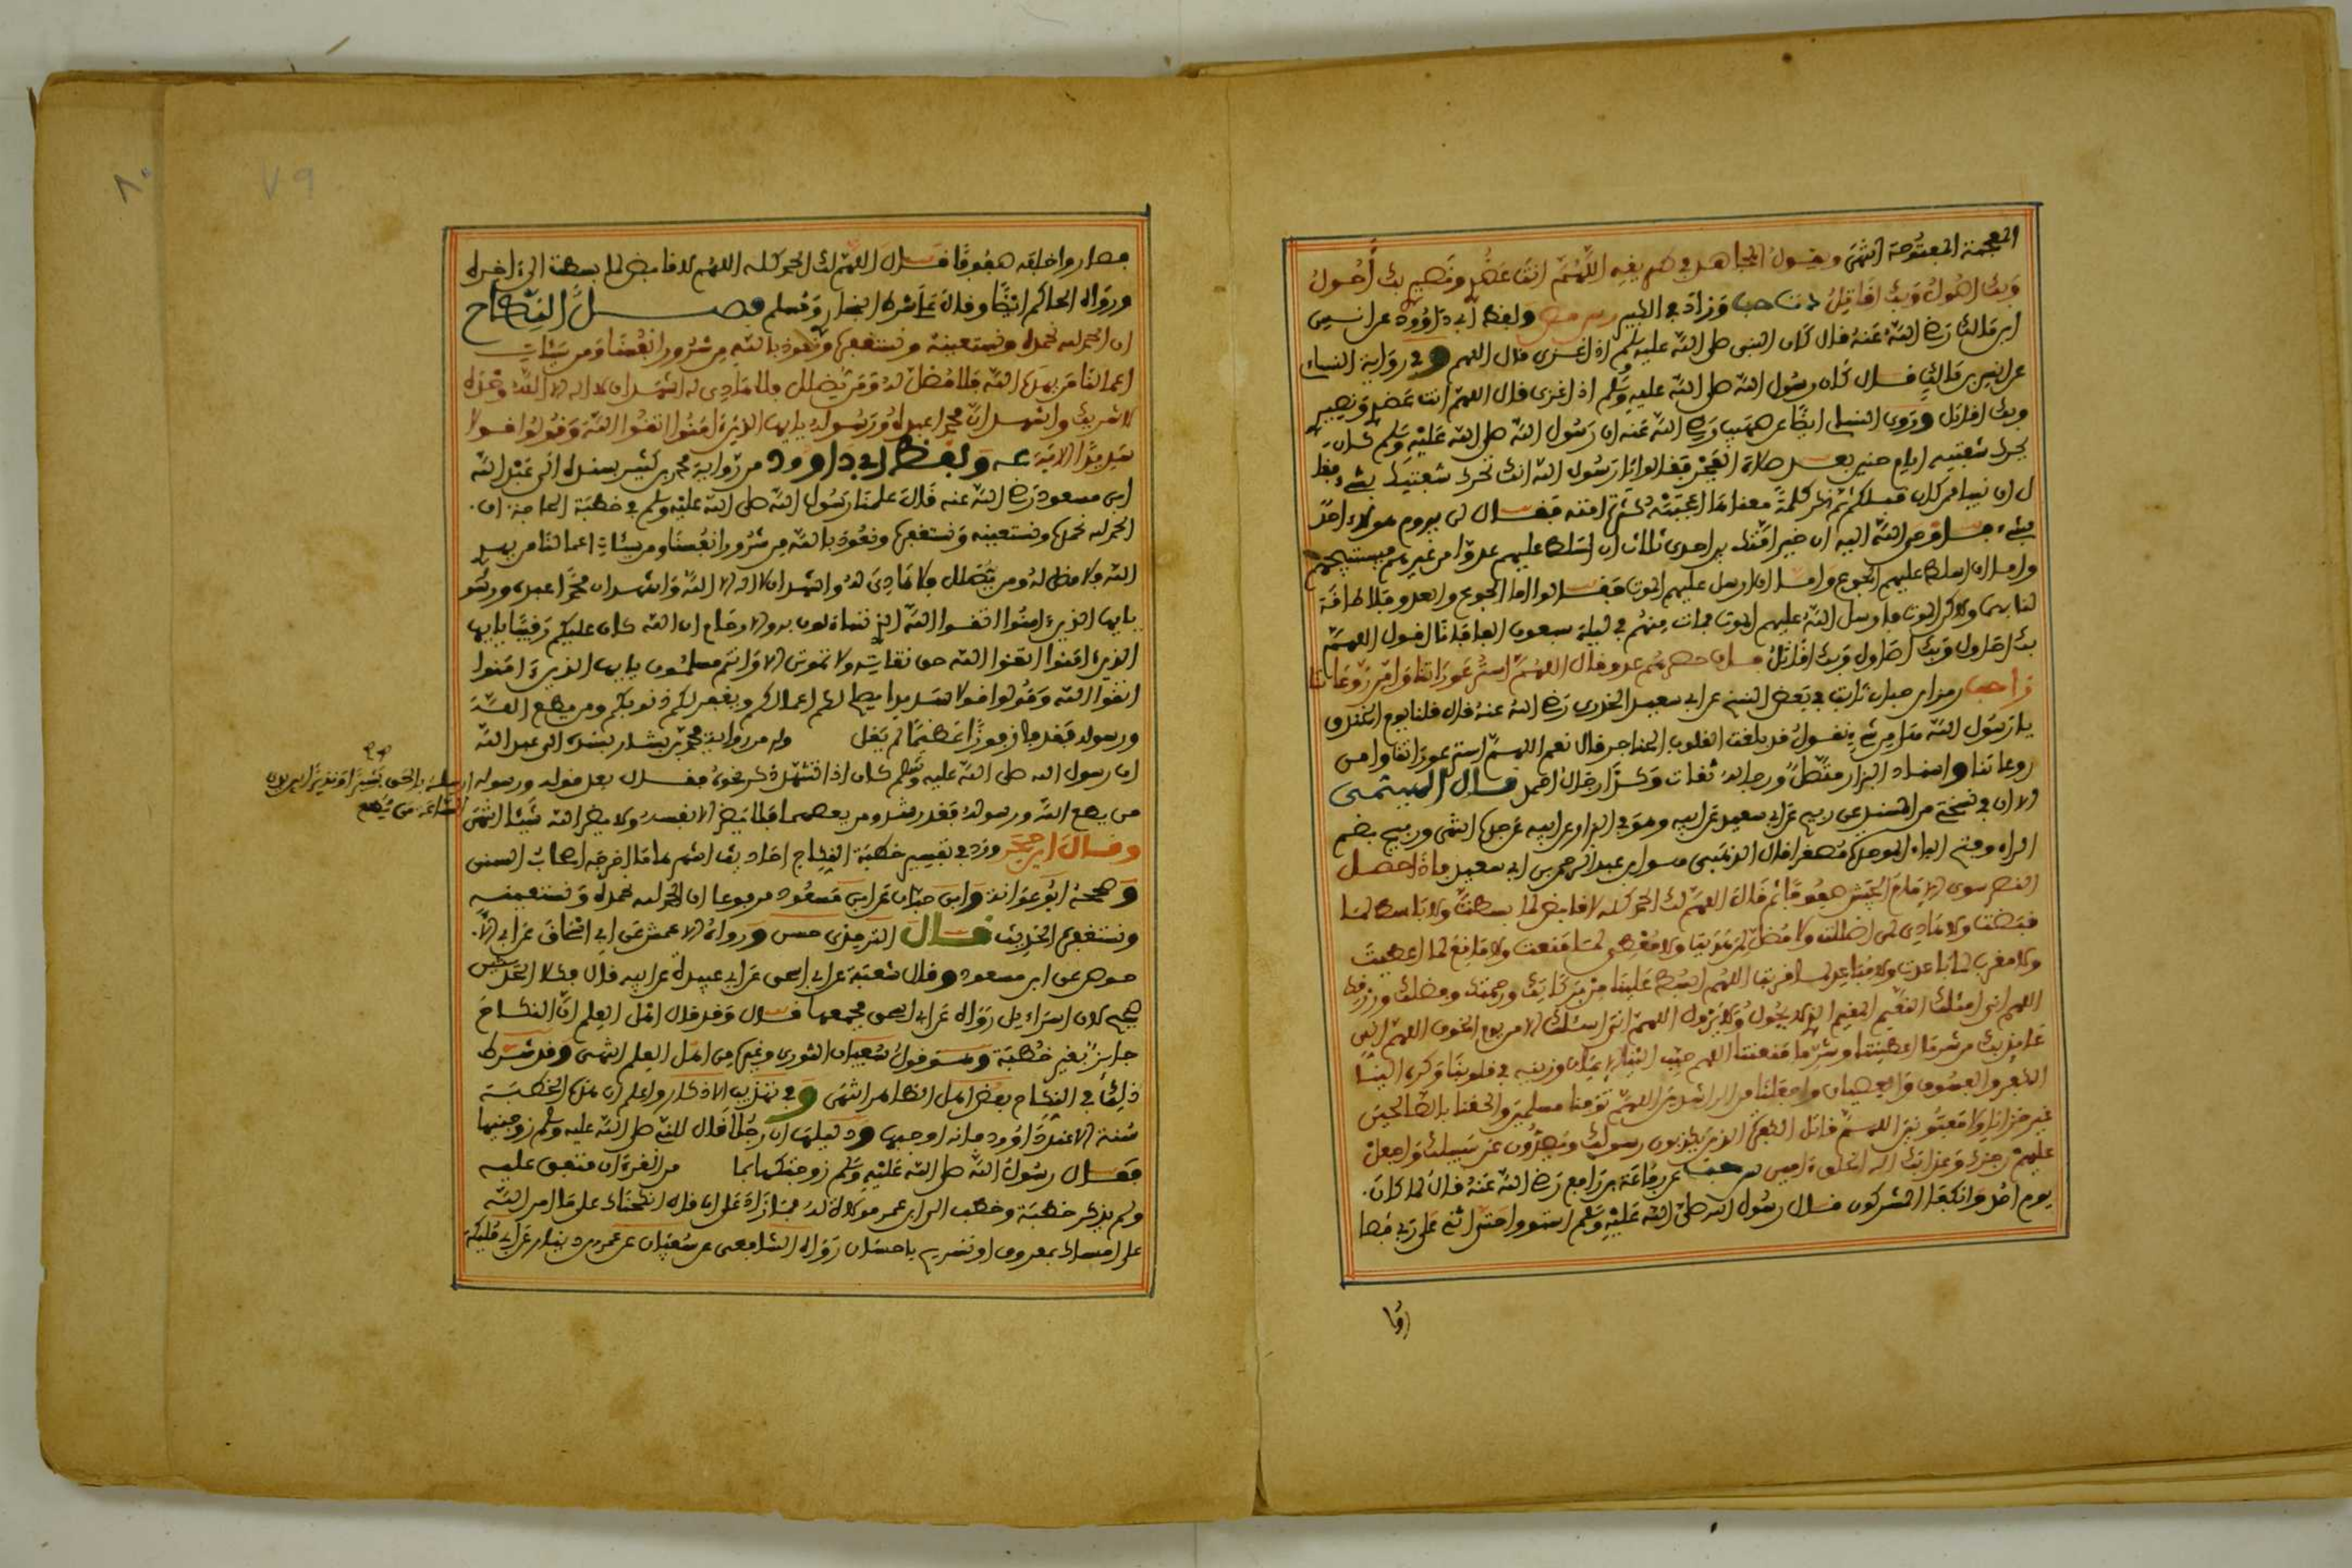 المعجمة المفتوحة انتهى ويقول المجاهد في اللهم انت عضدي ونصيري بك أحول
وبك اصول وبك اقاتل د ت حب وزاد في الكبير ولفظ ابي داوود عن انس
ابن مالك رضي الله عنه قال كان النبي صلى الله عليه وسلم اذا غزى قال اللهم وفي رواية النساء
عن انس بن مالك قال كان رسول الله صلى الله عليه وسلم اذا غزى قال اللهم انت عضدي ونصيري
وبك اقاتل وروى النساي ايضا عن صهيب رضي الله عنه ان رسول الله صلى الله عليه وسلم كان
يحرك شفتيه ايام حنين بعد صلاة الفجر فقالوا يا رسول الله انك تحرك شفتيك بشيء فقا
ل ان نبيا ممن كان قبلكم ثم ذكر كلمة معناها اعجبته كثرة امته فقال لن يروم هولاء احد
بشيء فاوحى الله اليه ان خير امتك بين احدى ثلاث ان اسلط عليهم عدوا من غيرهم فيستبيحهم
واما ان اسلط عليهم الجوع واما ان ارسل عليهم الموت فقالوا اما الجوع والعدو فلا طاقة
لنا بهما ولكن الموت فارسل الله عليهم الموت فمات منهم في ليلة سبعون الفا فانا اقول اللهم
بك احاول وبك اصاول وبك اقاتل فان حصرهم عدو قال اللهم استر عوراتنا وامن روعاتنا
ز ا حب رمز ابن حبان ثابت في بعض النسخ عن ابي سعيد الخدري رضي الله عنه قال قلنا يوم الخندق
يا رسول الله هل من شيء نقول قد بلغت القلوب الحناجر قال نعم اللهم استر عوراتنا وامن
روعاتنا واسناد البزار متصل ورجاله ثقات وكذا رجال احمد قال الهيثمي
الا ان في نسختي من المسند عن ربيح عن ابي سعيد عن ابيه وهو في البزار عن ابيه عن جده انتهى وربيح بضم
الراء وفتح الباء الموحدة مصغرا قال الذهبي هو ابن عبد الرحمن بن ابي سعيد فاذا حصل
النصر سوى الامام الجيش صفوفا ثم قال اللهم لك الحمد كله لا قابض لما بسطت ولا باسط لما
قبضت ولا هادي لمن اضللت ولا مضل لمن هديت ولا معطي لما منعت ولا مانع لما اعطيت
ولا مقرب لما باعدت ولا مباعد لما قربت اللهم ابسط علينا من بركاتك ورحمتك وفضلك ورزقك
اللهم اني اسئلك النعيم المقيم الذي لا يحول ولا يزول اللهم اني اسئلك الامن يوم الخوف اللهم اني
عائذ بك من شر ما اعطيتنا وشر ما منعتنا اللهم حبب الينا الايمان وزينه في قلوبنا وكره الينا
الكفر والفسوق والعصيان واجعلنا من الراشدين اللهم توفنا مسلمين والحقنا بالصالحين
غير خزايا ولا مفتونين اللهم قاتل الكفرة الذين يكذبون رسولك ويصدون عن سبيلك واجعل
عليهم رجزك وعذابك اله الخلق امين س حب عن رفاعة بن رافع رضي الله عنه قال لما كان
يوم احد وانكفا المشركون قال رسول الله صلى الله عليه وسلم استووا حتى اثني على ربي فصا
روا
فصاروا خلفه صفوفا فقال اللهم لك الحمد كله اللهم لا قابض لما بسطت الى اخره
ورواه الحاكم ايضا وقال على شرط البخاري ومسلم فصل النكاح
ان الحمد لله نحمده ونستعينه ونستغفره ونعوذ بالله من شرور انفسنا ومن سيئات
اعمالنا من يهده الله فلا مضل له ومن يضلل فلا هادي له اشهد ان لا اله الا الله وحده
لا شريك واشهد ان محمدا عبده ورسوله يايها الذين امنوا اتقوا الله وقولوا قولا
سديدا الاية عه ولفظ ابي داوود من رواية محمد بن كثير بسنده الى عبد الله
ابن مسعود رضي الله عنه قال علمنا رسول الله صلى الله عليه وسلم في خطبة الحاجة ان
الحمد لله نحمده ونستعينه ونستغفره ونعوذ بالله من شرور انفسنا ومن سيئات اعمالنا من يهد
الله فلا مضل له ومن يضلل فلا هادي له واشهد ان لا اله الا الله واشهد ان محمدا عبده ورسو
يايها الذين امنوا اتقوا الله الذي تساءلون به والارحام ان الله كان عليكم رقيبا يايها
الذين امنوا اتقوا الله حق تقاته ولا تموتن الا وانتم مسلمون يايها الذين ءامنوا
اتقوا الله وقولوا قولا سديدا يصلح لكم اعمالكم ويغفر لكم ذنوبكم ومن يطع الله
ورسوله فقد فاز فوزا عظيما لم يقل وله من رواية محمد بن بشار بسنده الى عبد الله
ان رسول الله صلى الله عليه وسلم كان اذا تشهد ذكر نحوه فقال بعد قوله ورسوله
ارسله بالحق بشيرا ونذيرا بين يدي
الساعة من يطع
من يطع الله ورسوله فقد رشد ومن يعصهما فلا يضر الا نفسه ولا يضر الله شيئا انتهى
وقال ابن حجر ورد في تفسير خطبة النكاح احاديث اشهرها ما اخرجه اصحاب السنن
وصححه ابو عوانة وابن حبان عن ابن مسعود مرفوعا ان الحمد لله نحمده ونستعينه
ونستغفره الحديث قال الترمذي حسن ورواه الاعمش عن ابي اسحاق عن ابي الا
حوص عن ابن مسعود وقال شعبة عن ابي اسحق عن ابي عبيدة عن ابيه قال فكلا الحديثين
صحيح لان اسرائيل رواه عن ابي اسحق فجمعهما قال وقد قال اهل العلم ان النكاح
جايز بغير خطبة وهو قول سفيان الثوري وغيره من اهل العلم انتهى وقد شرط
ذلك في النكاح بعض اهل الظاهر انتهى وفي تهذيب الاذكار واعلم ان هذه الخطبة
سنة الا عند داوود فانه اوجبها ودليلنا ان رجلا قال للنبي صلى الله عليه وسلم زوجنيها
فقال رسول الله صلى الله عليه وسلم زوجتكها بما من القرءان متفق عليه
ولم يذكر خطبة وخطب الى ابن عمر مولاة له فما زاد على ان قال انكحناك على ما امر الله
على امساك بمعروف او تسريح باحسان رواه الشافعي عن سفيان عن عمرو بن دينار عن ابي مليكة
٧٩
٨٠